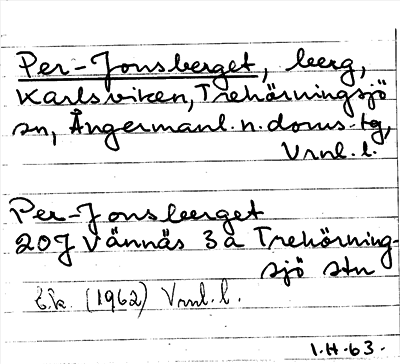 Per-Jonsberget, berg,
Karlsviken, Trehörningsjö
sn, Ångermanl. n. doms. tg,
Vrnl. l.
Per-Jonsberget
20J Vännäs 3a Trehörning-
sjö stn
E.k. (1962) Vrnl. l.
1.H.63.